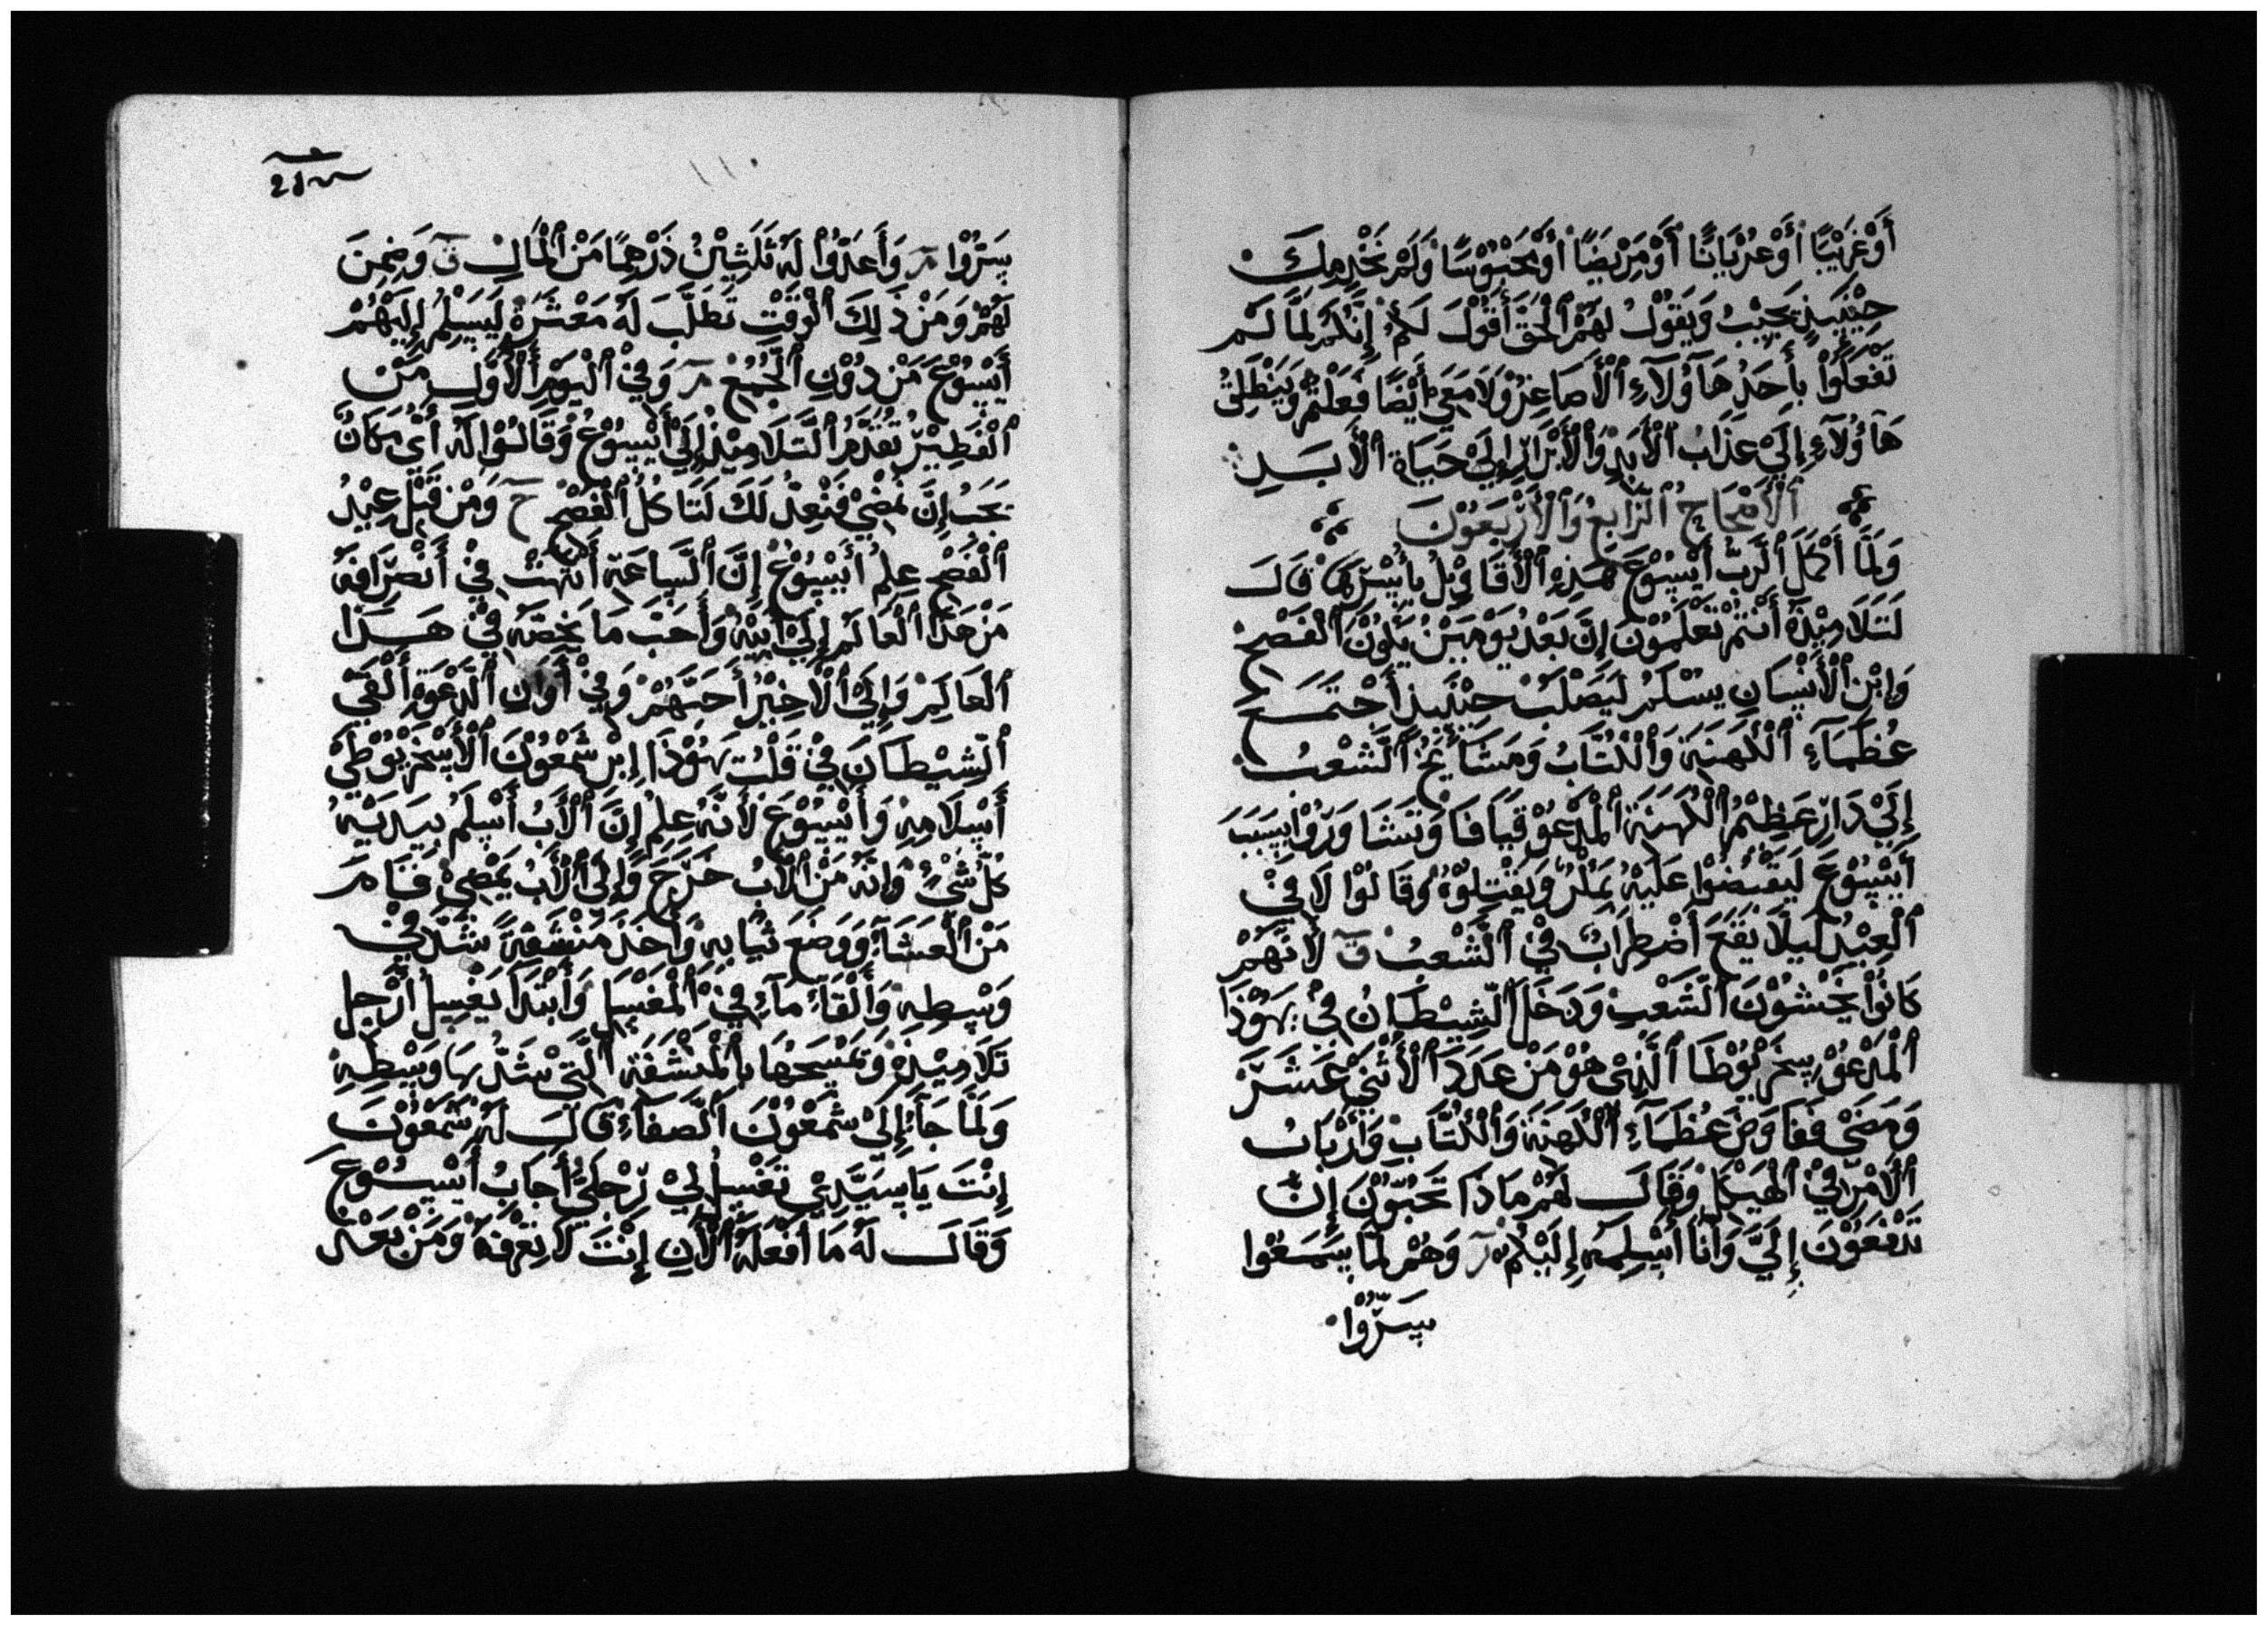 أَوْ غَرِيْبًا أَوْ عُرْيَانًا أَوْ مَرِيْضًا أَوْ مَحْبُوْسًا وَلَمْ نَخْدِمكَ
حِيْنَيِذٍ يَجِيْبُ وَيَقُوْلُ لَهُمْ اَلْحَقَّ أَقُوْلَ لَكُمْ إِنَّكُمْ لَمَّا لَم
تَفْعَلُوْا بِأَحَدُ هَآؤُلَآءِ اَلْأَصَاغِرْ وَلَا مَعَيَ أَيْضًا فَعَلْتُمْ وَيَنْطَلِقُ
هَآؤُلَآءِ إِلَيْ عَذَابُ اَلْأَبَدِ وَاَلْأَبْرَارِ إِلَيْ حَيَاةِ اَلْأَبَدِ
اَلْأَصْحَاحُ اَلْرَّابِعُ وَاَلْأَرْبَعُوْنَ
وَلَمَّا أَكْمَلَ اَلْرَّبُّ أَيْسُوْعَ هَذِهِ اَلْأَقَاوِيْلُ بِأَسْرِهَا قَالَ
لَتَلَامِيْذِهِ أَنْتُمْ تَعْلَمُوْنَ إِنَّ بَعْدُ يَوْمَيْنُ يَكُوْنُ اَلْفَصْحِ
وَابْنِ اَلْأَنْسَانِ يسْلَمُ لَيُصْلَبُ حِيْنَيِذٍ أَجْتَمَعَ
عُظَمَآءِ اَلْكَهَنَةِ وَاَلْكُتَّابُ وَمَشَايَخُ اَلْشَّعْبُ
إِلَيْ دَارِ عَظِيْمُ اَلْكَهَنَةِ اَلْمَدْعُوْ قَيَافَا وَتَشَاوَرُوْا بِسَبَبَ
أَيْسُوْعَ لَيَقْبِضُوْا عَلَيْهُ بِمَكْرٍ وَيَقْتِلُوْهُ وَقَالُوْا لَا فِيْ
اَلْعِيْدُ لَيلَا يَقَعَ أَضْطِرَابٌ فِيْ اَلْشَّعْبُ ق لَأَنَّهُمْ
كَانُوْا يَخْشُوْنَ اَلْشَّعْبِ وَدَخَلَ اَلْشِّيْطَانُ فِيْ يَهُوْذَا
اَلْمَدْعُوْ سِخَرْيُوْطَا اَلَّذِيْ هُوْ مَنْ عَدَدَ اَلْأَثْنَيْ عَشَرَ
وَمَضَىْ فَفَاوَضَ عُظَمَآءِ اَلْكَهَنَةِ وَاَلْكُتَّابْ وَأَرْبَابُ
اَلْأَمْرِ فِيْ اَلْهَيْكَلِ وَقَالَ لَهُمْ مَاذَا تَحُبُّوْنَ إِنْ
تَدْفَعُوْنَ إِلَيَّ وَأَنَا أُسْلِمَهِ إِلَيْكُمْ مر وَهُمْ لَمَّا سَمَعُوْا
سَرُّوْا
سَرُّوْا مر وَأَعَدُّوْا لَهُ ثَلَثِيْنُ دَرْهِمًا مَنْ اَلْمَالِ ق وَضِمَنَ
لَهُمْ وَمَنْ ذَلِكَ اَلْوَقَتِ تَطَلَّبَ لَهُ مَعْثَرَةً لَيَسِلَمُ إِلَيْهُمْ
أَيْسُوْعَ مَنْ دُوْنِ اَلْجُمُعْ مر وَفِيْ اَلْيَوْمِ اَلْأَوَّلِ مَنْ
اَلْفَطِيْرُ تَقَدَّمُ اَلْتَّلَامِيْذُ إِلَيْ أَيْسُوْعَ وَقَالُوْا لَهُ أَيْ مَكَانٌ
تَحَبُ إِنَّ نَمْضِيْ فَنَعِدُّ لَكَ لَتَاكُلُ اَلْفَصْحُ ح وَمْنْ قَبْلِ عِيْدُ
اَلْفَصْحِ عِلِمُ أَيْسُوْعُ إِنَّ اَلْسَّاعَةِ أَنْتَهَتْ فِيْ أَنْصِرَافَهُ
مَنْ هَذَا اَلْعَالَمِ إِلَيْ أَبِيْهُ وَأَحَبَّ مَا يَخُصَّهُ فِيْ هَذَا
اَلْعَالَمِ وَإِلَيْ اَلْأَخِيْرُ أَحَبَّهُمْ وَفِيْ أَوَانِ اَلْدَّعْوَةِ أَلْقَيْ
اَلْشِّيْطَانَ فِيْ قَلْبُ يَهُوْذَا إِبْنِ شَمْعُوْنَ اَلْأَسْخَرْيُوْطِيْ
أَسْلَامِهِ وَأَيْسُوْعَ لَأَنَّهُ عِلِمُ إِنَّ اَلْأَبُ أَسْلَمُ بِيَدَيْهِ
كُلُّ شَيٍْ وَإِنَّهُ مَنْ اَلْأَبُ خَرَجَ وَإِلَىْ اَلْأَبُ يَمْضِيْ فَقَامَ
مَنْ اَلْعَشَآءِ وَوَضَعَ ثْيَابِهِ وَأَخَذَ مَنْشَفَةً شَدَّ فِيْ
وَسْطِهِ وَأَلْقَاءَ مَآءٍ فِيْ اَلْمَغْسَلِ وَأَبْتَدَا يَغْسِلْ أَرْجِلِ
تَلَامِيْذِهْ وَتَمْسَحْهَا بِالْمِنْشَفَةِ اَلَّتِيْ شَدَّ بِهَا وَسْطِهِ
وَلَمَّا جَآءَ إِلَيْ شَمْعُوْنَ اَلْصَّفَآءِ قَالَ لَهُ شَمْعُوْنَ
إِنْتَ يَا سَيَّدِيْ تَغْسِلُ لِيْ رِجْلَيَّ أَجَابُ أَيْسُوْعَ
وَقَالَ لَهُ مَا أَفْعَلَهُ اَلْأَنِ إِنْتَ لَا تِعْرِفَهُ وَمَنْ بَعْدْ